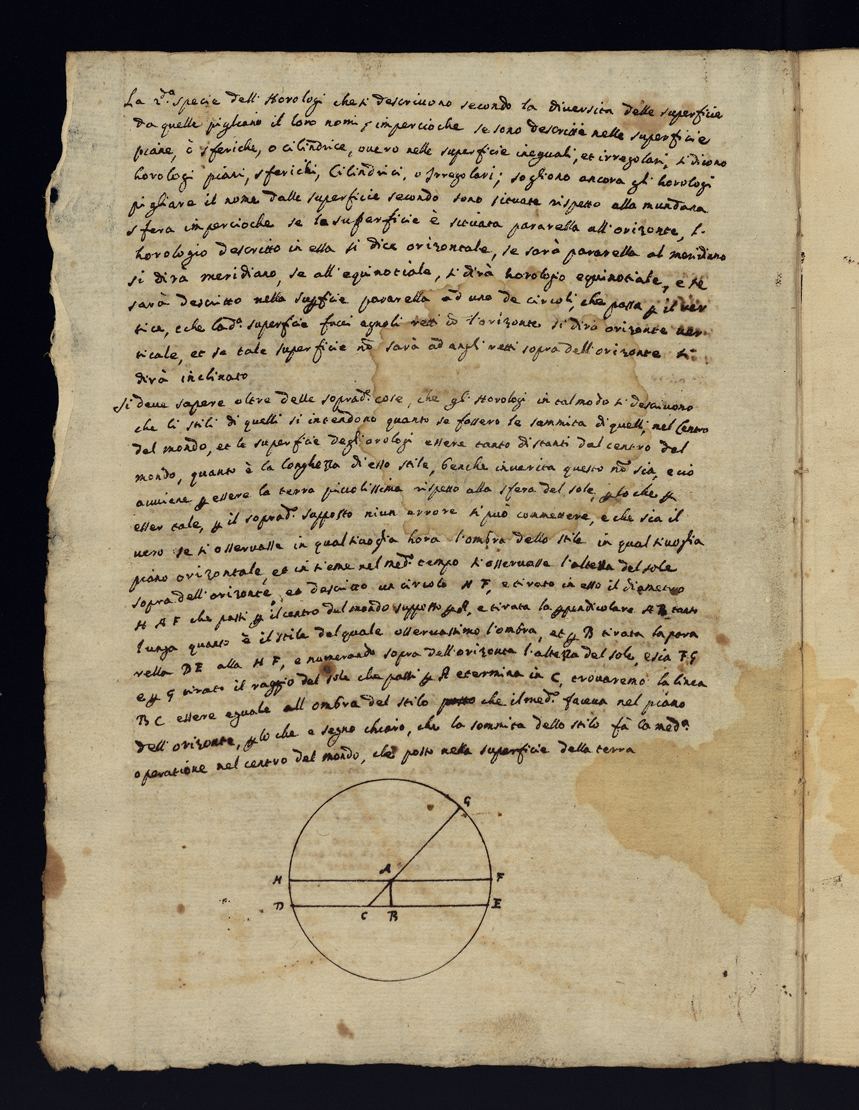 La 2.da specie dell' Horologi che si descrivono secondo la diversità delle superficie
da quelle pigliano il loro nomi, impercioche se sono descrise nelle superficie
piane, ò sferiche, o cilindrice, overo nelle superficie ineguali, et irregolari, si dicono
horologi piani, sferichi, Cilindrici, o Irregolari; sogliono ancora gl' horologi
pigliare il nome dalle superficie secondo sono situate rispetto alla mundana
sfera impercioche se la superficie è situata pararella all' orizonte, l'
horologio descritto in essa si dice orizontale, se sarà pararella al meridiano
si dirà meridiano, se all' equinotiale, si dirà horologio equinotiale, e se
sarà descritto nella supficie pararella ad uno de circoli, che passa p il ver
tice, e che la d.a superficie facci egnoli retti cō l'orizonte si dirà orizonte ver
ticale, et se tale superficie nō sarà ad angli retti sopra dell' orizonte si
dirà inclinato
Si deve sapere oltre delle soprad.e cose, che gl' Horologi in tal modo si descrivono
che li stili di quelli si intendono quanto se fossero le sammita di quelli, nel Centro
del mondo, et le superficie degli orologi essere tanto distanti dal centro del
mondo, quanto è la longhezza di esso stile, benche in varita questo nō sia, e ciò
avviene p essere la terra piccolissima rispetto alla sfera del sole, p lo che p
esser tale, p il soprad.o supposto niun errore si può commettere, e che sia il
vero se si osservasse in qual si voglia hora l'ombra dello stile in qual si voglia
piano orizontale, et in sieme nel med.o tempo si osservasse l'altezza del sole
sopra dell' orizonte, et descritto un circolo H F, e tirato in esso il diametro
H A F che passi p il centro dul mondo supposto p A, e tirata la ppendicolare A B tanto
lunga quanto è il stile del quale osservassimo l'ombra, et p B tirata la para
rella D E alla H F, e numerando sopra dell' orizonta l'altezza del sole, e sia F G
e p G tirato il raggio del sole che passi p A e termina in C, trovaremo la linea
B C essere eguale all ombra del stilo che il med.o faceva nel piano
dell' orizonte, p lo che e segno chiaro, che la sommita dello stilo fà la med.a
operatione nel centro del mondo, che posto nella superficie della terra
G
A
H F
D E
C B